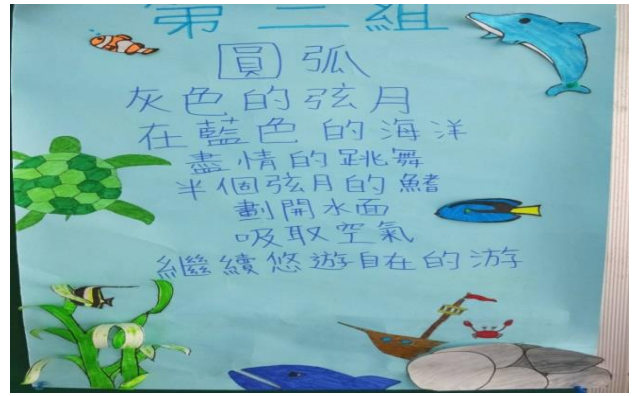 圓弧
灰色的弦月
在藍色的海洋
盡情的跳舞
半個弦月的鰭
劃開水面
吸取空氣
繼續悠遊自在的游